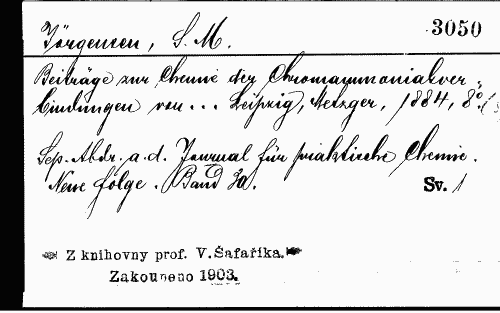 3050
Jörgensen, S. M.
Beiträge zur Chemie der Chromammoniakver-
bindungen von ... Leipzig, Metzger, 1884, 8º.
Sep. Abdr. a. d. Journal für praktische Chemie.
Neue Folge. Band 30.
Sv. 1
Z knihovny prof. V. Šafaříka.
Zakoupeno 1903.